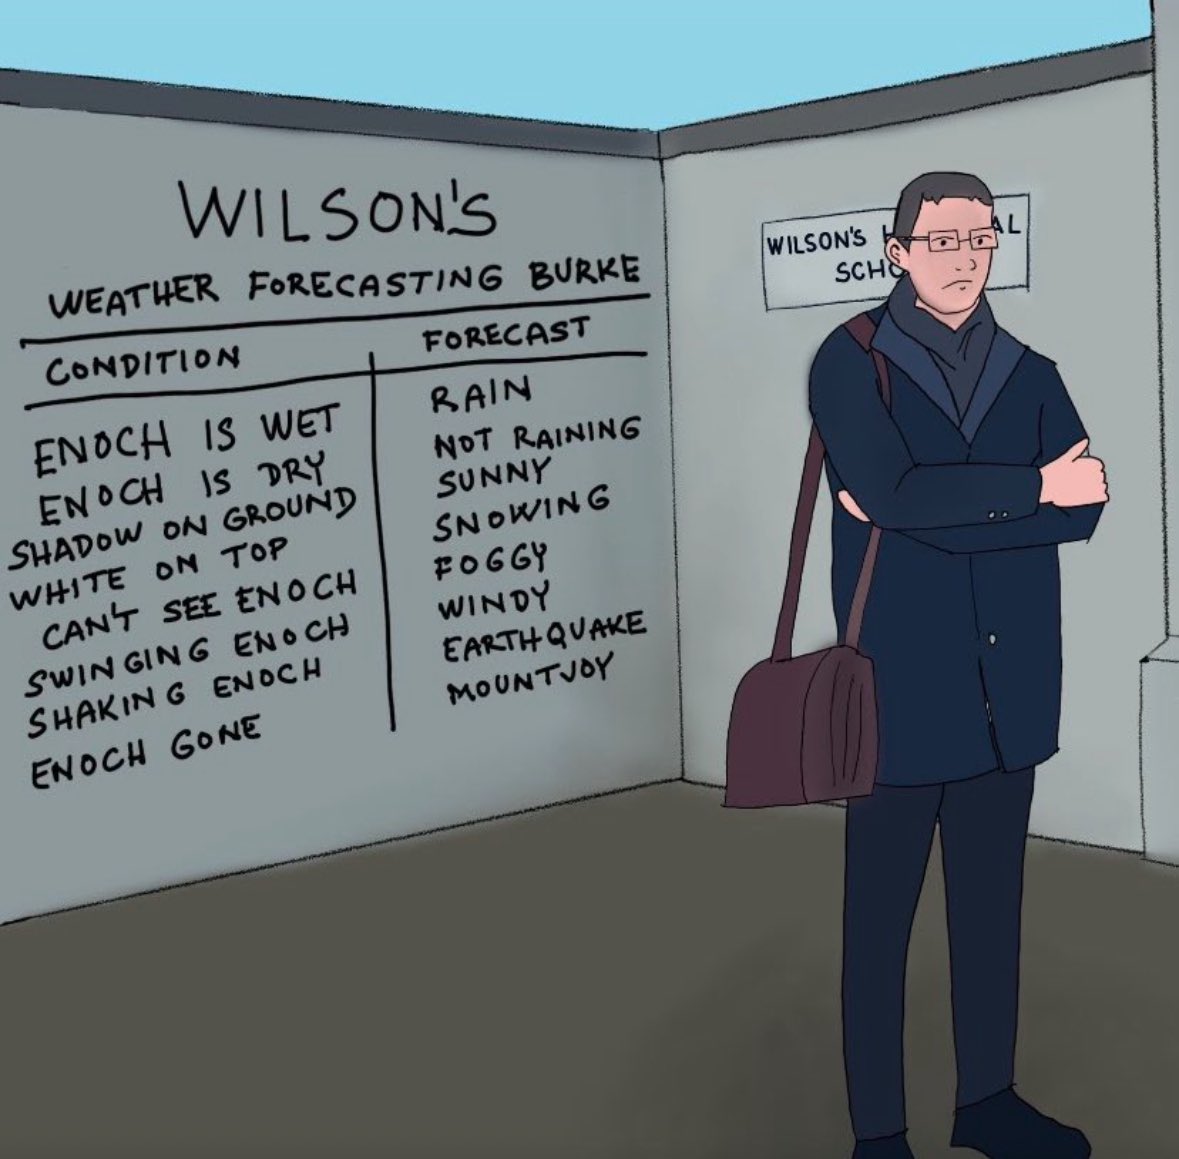 WILSON'S
WEATHER FORECASTING BURKE
CONDITION
FORECAST
ENOCH IS WET
RAIN
ENOCH IS DRY
NOT RAINING
SHADOW ON GROUND
SUNNY
WHITE ON TOP
SNOWING
CAN'T SEE ENOCH
FOGGY
SWINGING ENOCH
WINDY
SHAKING ENOCH
EARTHQUAKE
ENOCH GONE
MOUNTJOY
WILSON'S